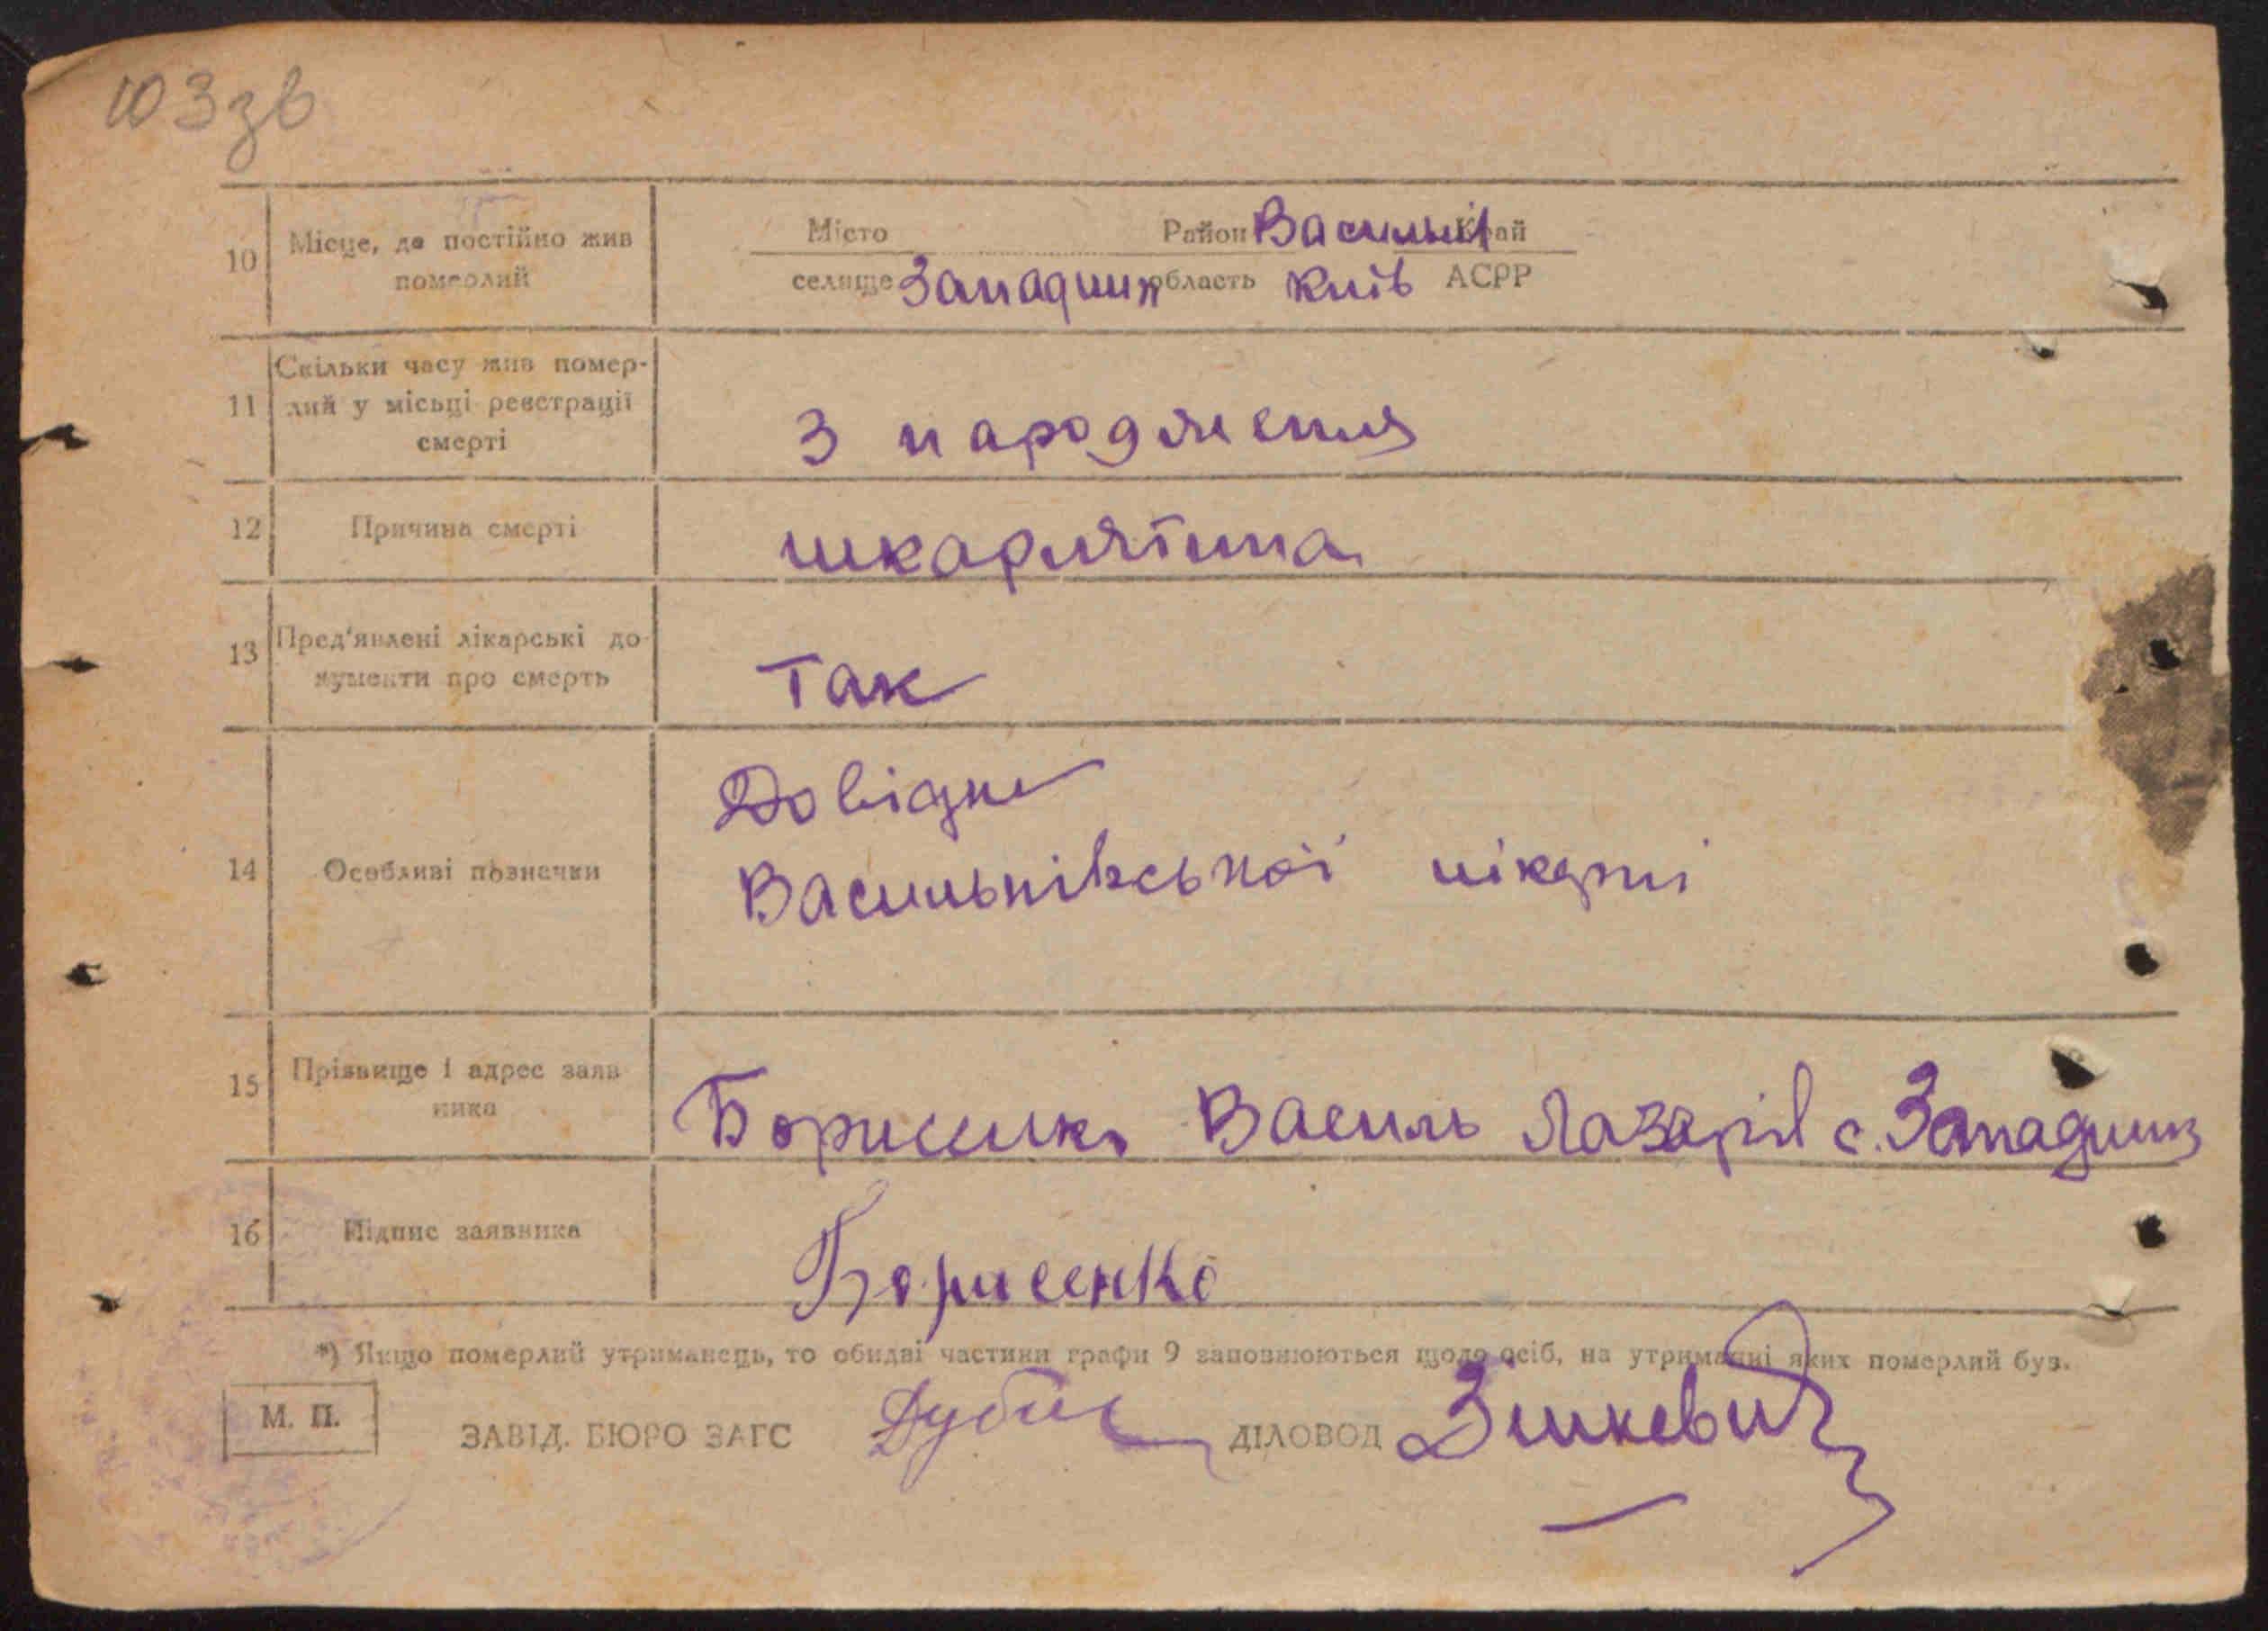 103зв
10 Місце, де постійно жив померлий
Місто Район Василькі Край
селище Западинк область Київ АСРР
11 Скільки часу жив помер-
лий у місьці реєстрації
смерті
З народження
12 Причина смерті шкарлятина
13 Пред'явлені лікарські до-
кументи про смерть
Так
14 Особливі позначки
Довідки
Васильківської лікарні
15 Прізвище і адрес заяв
ника
Борисенко Василь Лазарів с. Западинк
16 Підпис заявника Борисенко
*) Якщо померлий утриманець, то обидві частини графи 9 заповнюються щодо осіб, на утриманні яких померлий був.
М. П.
ЗАВІД. БЮРО ЗАГС ДІЛОВОД Зінкевич